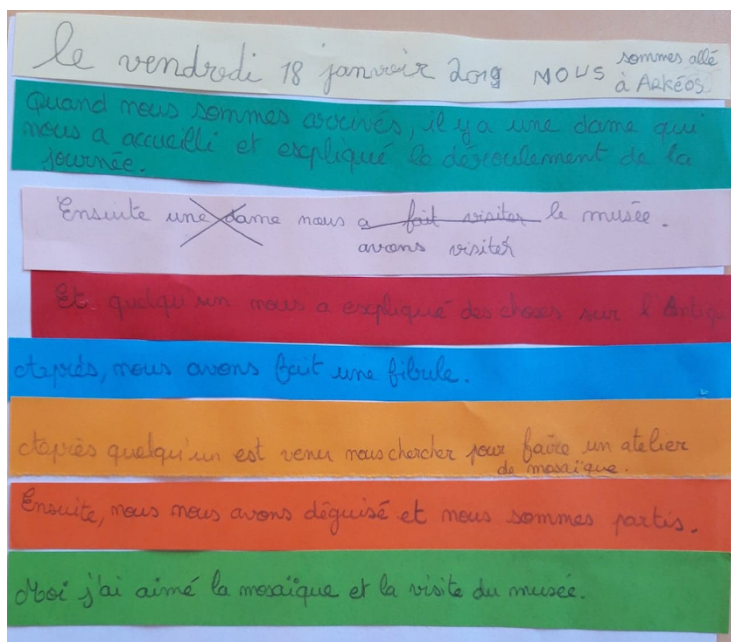 le vendredi 18 janvoir 2019 NOUS sommes allé
à ARkéos.
Quand nous sommes arrivés, il y a une dame qui
nous a accueilli et expliqué le déroulement de la
journée.
Ensuite une dame nous a fait visiter le musée.
avons visiter
Et quelqu'un nous a expliqué des choses sur l'Antiqu
Après, nous avons fait une fibule.
Après quelqu'un est venu nous chercher pour faire un atelier
de mosaïque.
Ensuite, nous nous avons déguisé et nous sommes partis.
Moi j'ai aimé la mosaïque et la visite du musée.